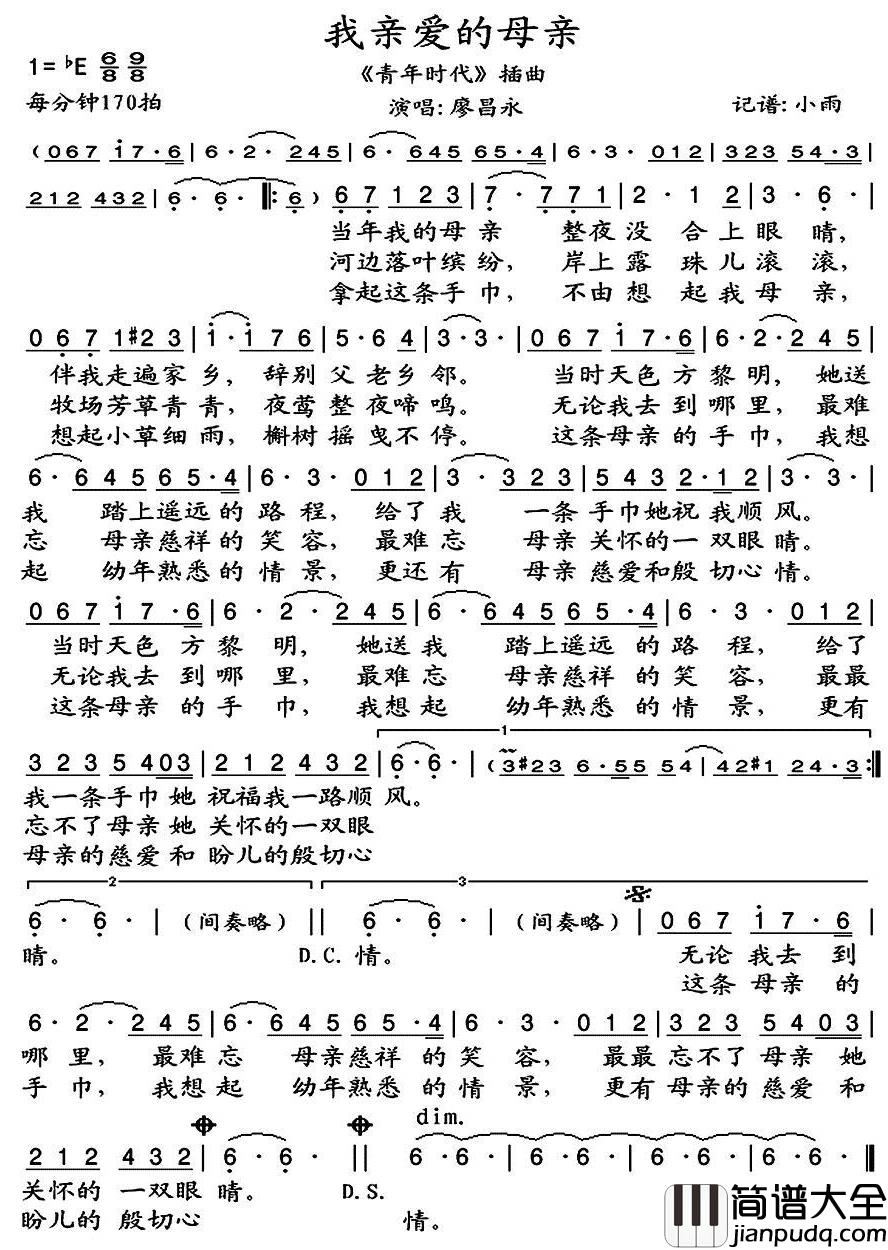 我亲爱的母亲
1= ♭E 6/8 9/8
《青年时代》插曲
每分钟170拍
演唱: 廖昌永
记谱: 小雨
( 0 6 7 i 7 · 6 | 6 · 2 · 2 4 5 | 6 · 6 4 5 6 5 · 4 | 6 · 3 · 0 1 2 | 3 2 3 5 4 · 3 |
2 1 2 4 3 2 | 6 · 6 · ‖: 6 ) 6 7 1 2 3 | 7 · 7 7 1 | 2 · 1 2 | 3 · 6 · |
当年我的母亲 整夜没 合上眼睛,
河边落叶缤纷, 岸上露 珠儿滚滚,
拿起这条手巾, 不由想 起我母亲,
0 6 7 1 #2 3 | i · i 7 6 | 5 · 6 4 | 3 · 3 · | 0 6 7 i 7 · 6 | 6 · 2 · 2 4 5 |
伴我走遍家乡, 辞别父老乡邻。 当时天色方黎明, 她送
牧场芳草青青, 夜莺整夜啼鸣。 无论我去到哪里, 最难
想起小草细雨, 槲树摇曳不停。 这条母亲的手巾, 我想
6 · 6 4 5 6 5 · 4 | 6 · 3 · 0 1 2 | 3 · 3 2 3 | 5 4 3 2 · 1 2 | 3 · 3 · |
我 踏上遥远的路程, 给了我 一条手巾她祝我顺风。
忘 母亲慈祥的笑容, 最难忘 母亲关怀的一双眼睛。
起 幼年熟悉的情景, 更还有 母亲慈爱和殷切心情。
0 6 7 i 7 · 6 | 6 · 2 · 2 4 5 | 6 · 6 4 5 6 5 · 4 | 6 · 3 · 0 1 2 |
当时天色方黎明, 她送我 踏上遥远的路程, 给了
无论我去到哪里, 最难忘 母亲慈祥的笑容, 最最
这条母亲的手巾, 我想起 幼年熟悉的情景, 更有
1
3 2 3 5 4 0 3 | 2 1 2 4 3 2 | 6 · 6 · ( 3 #2 3 6 · 5 5 5 4 | 4 2 #1 2 4 · 3 :‖
我一条手巾她 祝福我一路顺风。
忘不了母亲她 关怀的一双眼
母亲的慈爱和 盼儿的殷切心
2 3
6 · 6 · | (间奏略) ‖ 6 · 6 · | (间奏略) | 0 6 7 i 7 · 6 |
睛。 D.C. 情。 无论我去到
这条母亲的
6 · 2 · 2 4 5 | 6 · 6 4 5 6 5 · 4 | 6 · 3 · 0 1 2 | 3 2 3 5 4 0 3 |
哪里, 最难忘 母亲慈祥的笑容, 最最忘不了母亲她
手巾, 我想起 幼年熟悉的情景, 更有母亲的慈爱和
dim.
2 1 2 4 3 2 | 6 · 6 · ‖ 6 · 6 · | 6 · 6 · | 6 · 6 · | 6 · 6 · ‖
关怀的一双眼睛。 D.S.
盼儿的殷切心 情。
简谱大全
jianpudq.com